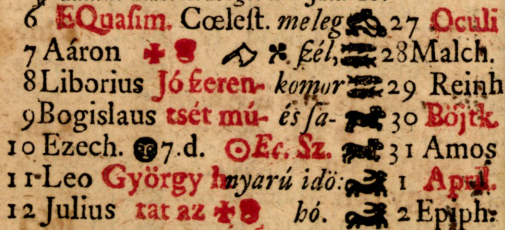 6 EQuasim. Cœlest. meleg 27 Oculi
7 Aáron szél, 28 Malch.
8 Liborius Jó szeren- komor 29 Reinh
9 Bogislaus tsét mú- és sa- 30 Böjtk.
10 Ezech. 7. d. ☉ Ec. Sz. 31 Amos
11 Leo György nyarú idö: 1 April.
12 Julius tat az hó. 2 Epiph: